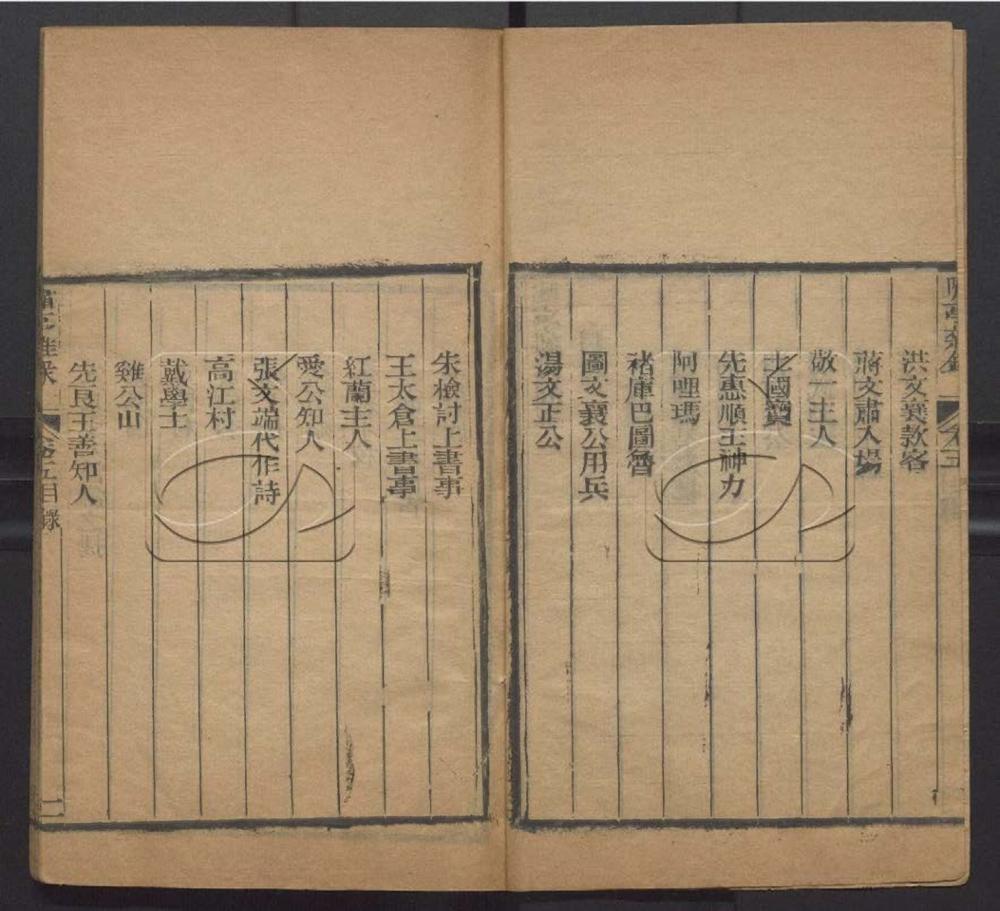 洪文襄款客
蔣文肅入場
敬一主人
土國寶
先惠順王神力
阿哩瑪
褚庫巴圖魯
圖文襄公用兵
湯文正公
朱檢討上書事
王太倉上書事
紅蘭主人
愛公知人
張文端代作詩
高江村
戴學士
雞公山
先良王善知人
卷五目錄
二